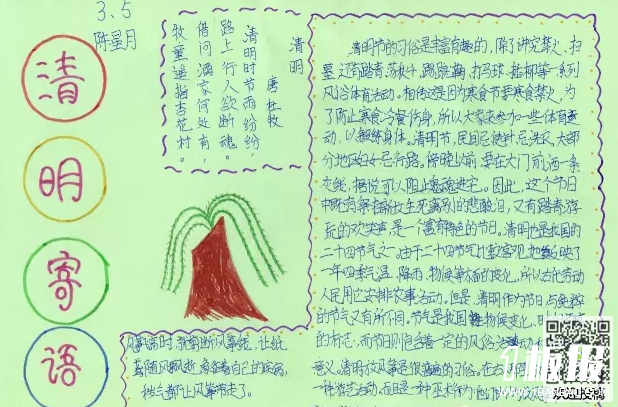 3.5
陈星月
清
明
寄
语
清明
唐 杜牧
清明时节雨纷纷，
路上行人欲断魂。
借问酒家何处有，
牧童遥指杏花村。
清明节的习俗是丰富有趣的，除了讲究禁火、扫
墓，还有踏青、荡秋千、蹴鞠、打马球、插柳等一系列
风俗体育活动。相传这是因为寒食节要寒食禁火，为
了防止寒食冷餐伤身，所以大家来参加一些体育活
动，以锻炼身体。清明节，民间忌使针，忌洗衣，大部
分地区妇女忌行路。傍晚以前，要在大门前洒一条
灰线，据说可以阻止鬼魂进宅。因此，这个节日
中既有祭扫新坟生死离别的悲酸泪，又有踏青游
玩的欢笑声，是一个富有特色的节日。清明也是我国的
二十四节气之一。由于二十四节气比较客观地反映了
一年四季气温、降雨、物候等方面的变化，所以古代劳动
人民用它安排农事活动。但是，清明作为节日，与
的节气又有所不同。节气是我国物候变化、
的标志，而节日则包含着一定的风俗活动
意义。清明放风筝是很普遍的习俗。在古
一种游艺活动，而且是一种巫术行为，他们
剪断风筝线，让
着随风飘逝，象着自己的疾病、
秽气都让风筝带走了。
欢迎投稿